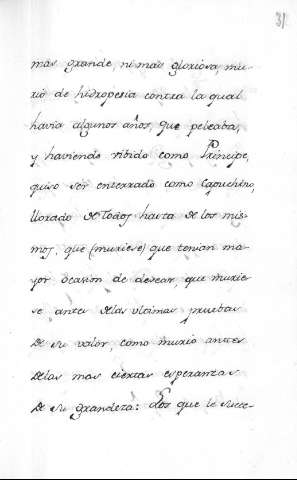 31
mas grande, ni mas gloriosa, mu-
rió de hidropesia contra la qual
havia algunos años, que peleaba,
y haviendo vibido como Principe,
quiso ser enterrado como Capuchino,
llorado de todos hasta de los mis-
mos, que (muriese) que tenian ma-
yor ocasion de desear, que murie-
se antes delas ultimas pruebas
de su valor, como murio antes
delas mas ciertas esperanzas
de su grandeza: Los que le succe-